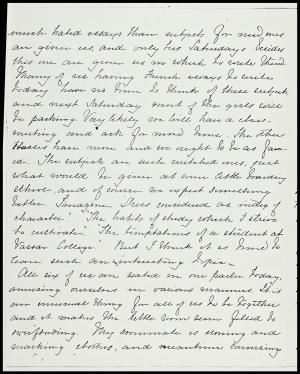 much hated essays than subjects for new ones
are given us, and only two Saturdays besides
this one are given us in which to write them.
Many of us having French essays to write
today have no time to think of these subjects
and next Saturday most of the girls will
be packing. Very likely we will have a class
meeting and ask for more time. The other
have more and we ought to be as
The subjects are such wretched ones, just
what would be given at some little boarding
school and of course we expect something
better. Imagine, "Dress considered as index of
character." "The habits of study which I strive
to cultivate." "The temptations of a student at
Vassar College." But I think it is time to
leave such an topic.
All six of us are seated in our parlor today,
amusing ourselves in various manners. It is
an unusual thing for all of us to be together
and it makes the little room seem filled to
overflowing. My roommate is ironing and
marking clothes, and meantime